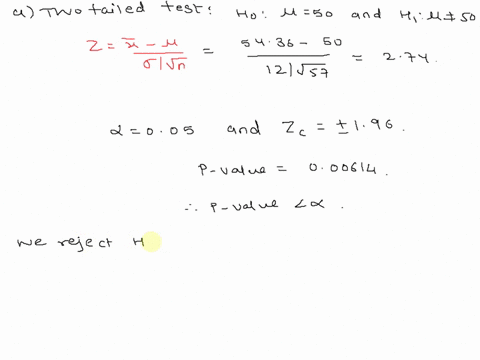 a) Two tailed test: H0: μ = 50 and H1: μ ≠ 50
Z = x̄ - μ / σ/√n = 54.36 - 50 / 12/√57 = 2.74.
α = 0.05 and Zc = ± 1.96.
P-value = 0.00614.
∴ P-value < α.
We reject H